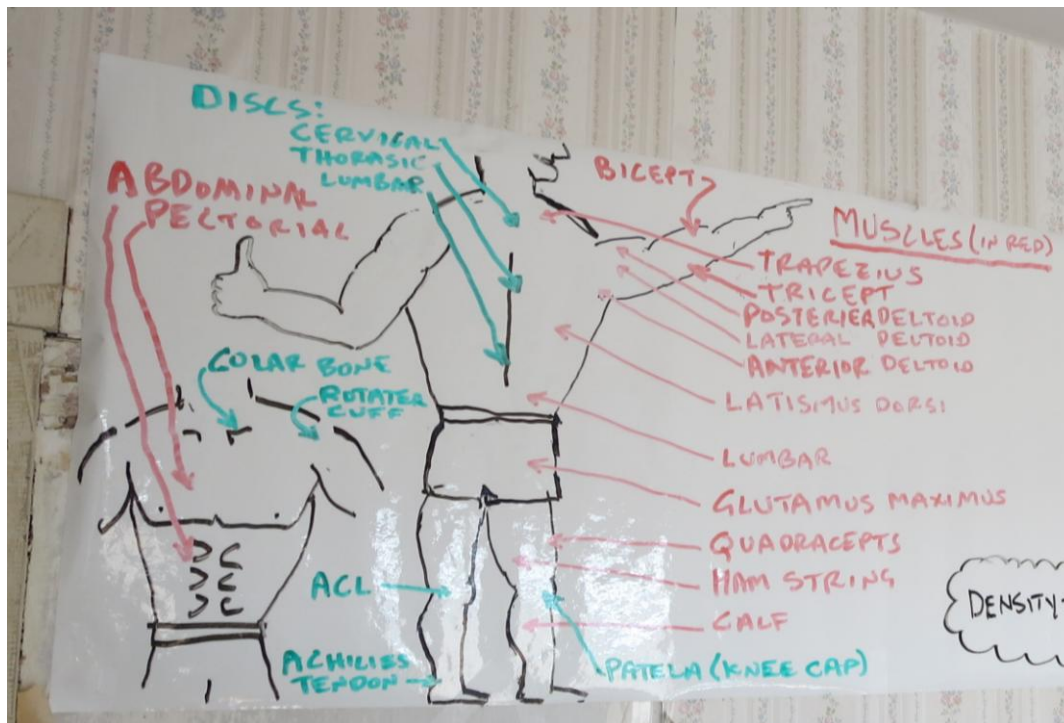 DISCS:
CERVICAL
THORASIC
LUMBAR
ABDOMINAL
PECTORIAL
BICEPT
MUSCLES (IN RED)
TRAPEZIUS
TRICEPT
POSTERIER DELTOID
LATERAL DELTOID
ANTERIOR DELTOID
LATISIMUS DORSI
COLAR BONE
ROTATER
CUFF
LUMBAR
GLUTAMUS MAXIMUS
QUADRACEPTS
HAM STRING
CALF
ACL
ACHILIES
TENDON
PATELA (KNEE CAP)
DENSITY